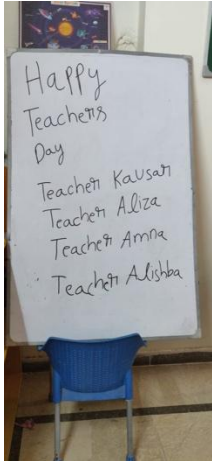 Happy
Teachers
Day
Teacher Kausar
Teacher Aliza
Teacher Amna
Teacher Alishba